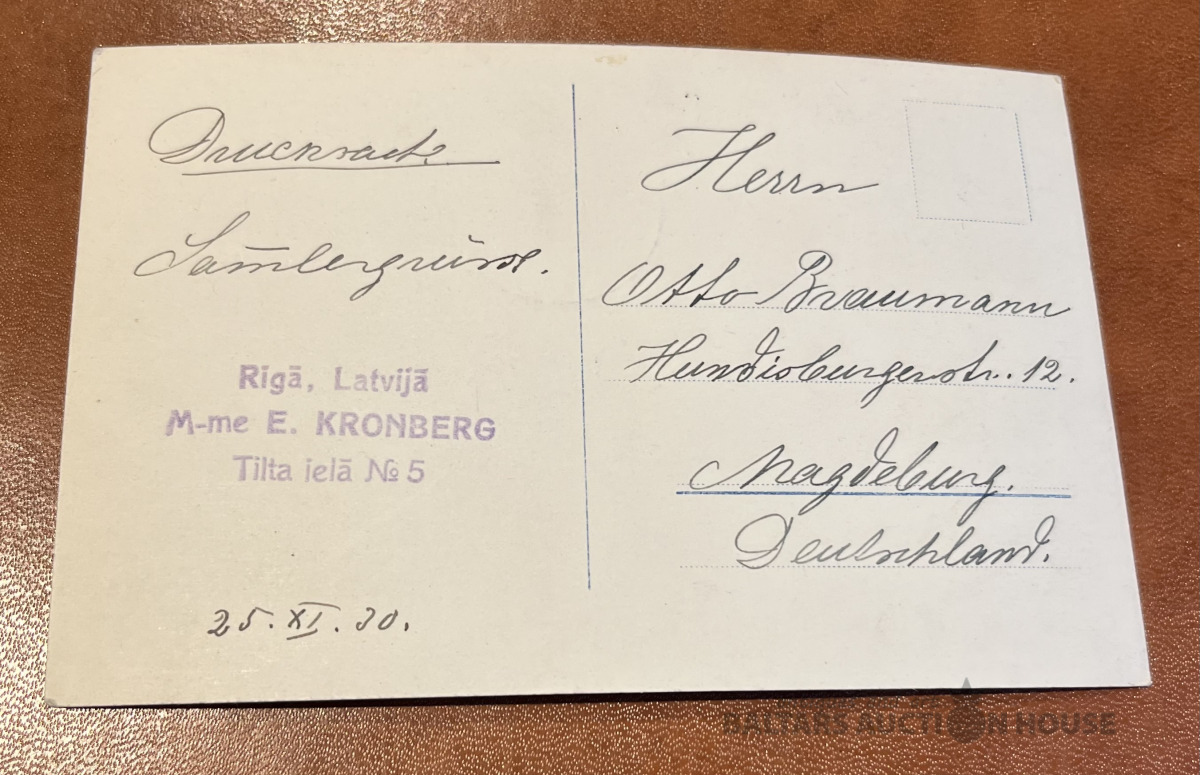 Drucksache
Sam̅lergrüsse.
Rigā, Latvijā
M-me E. KRONBERG
Tilta ielā № 5
25. XI. 30.
Herrn
Otto Braumann
Hundisburgerstr. 12.
Magdeburg.
Deutschland.
BALTARS AUCTION HOUSE